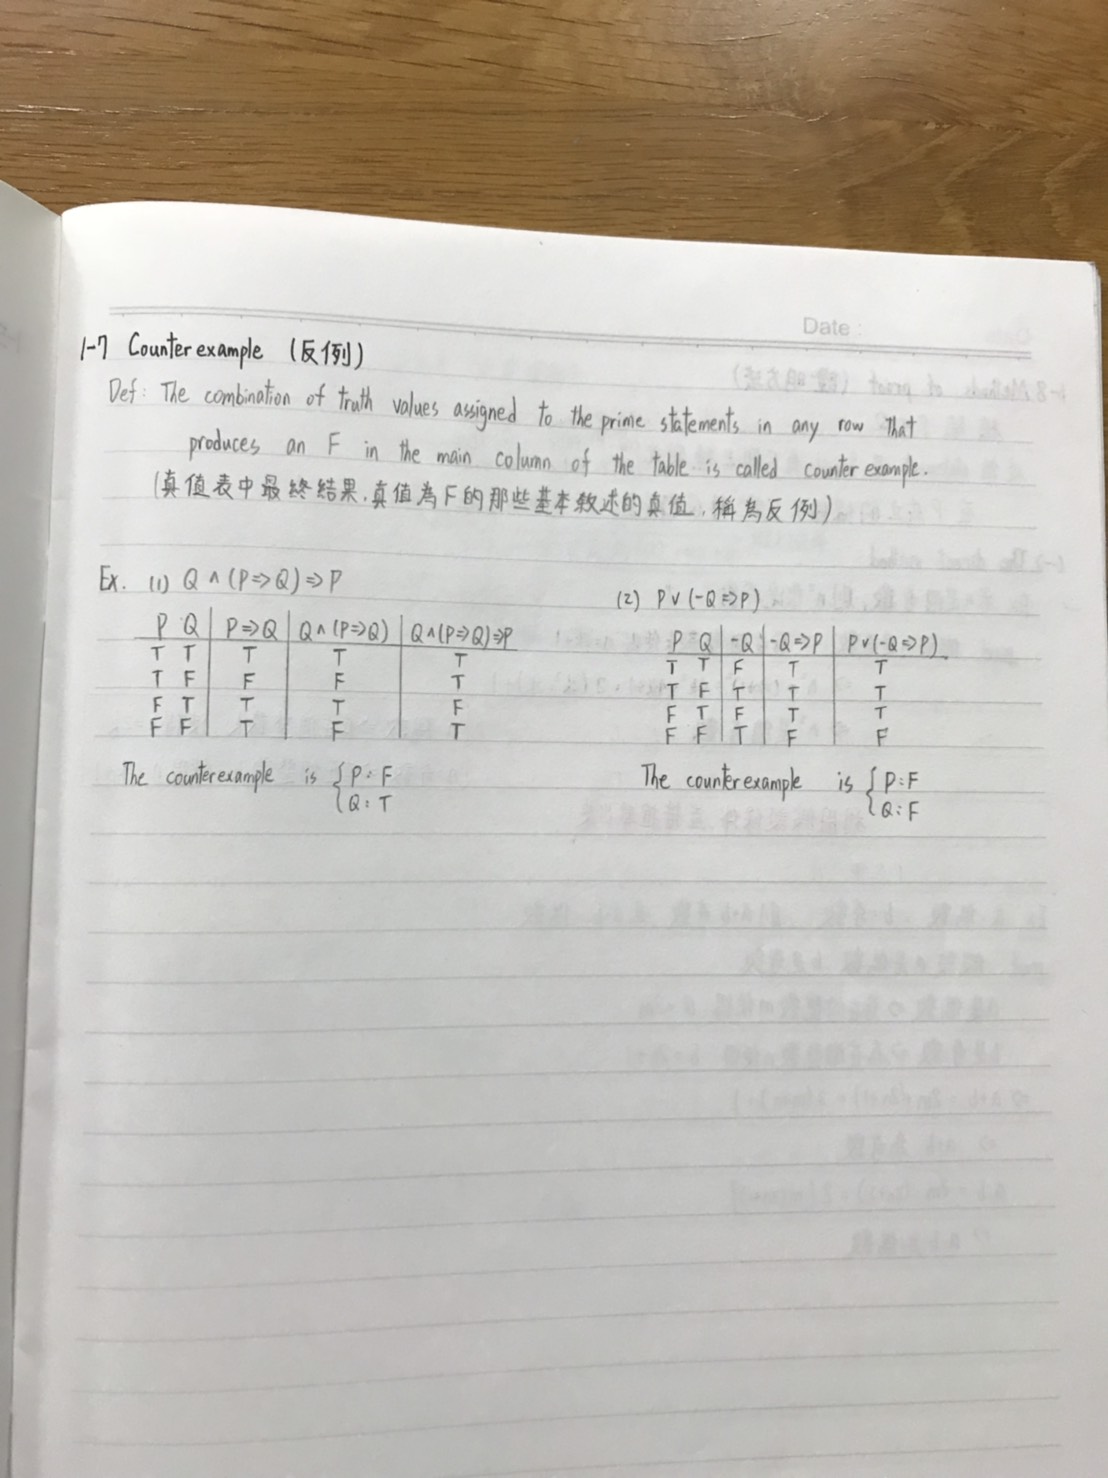 Date :
1-7 Counterexample (反例)
Def: The combination of truth values assigned to the prime statements in any row that
produces an F in the main column of the table is called counterexample.
(真值表中最終結果,真值為F的那些基本敘述的真值,稱為反例)
Ex. (1) Q ∧ (P⇒Q)⇒P
P Q P⇒Q Q∧(P⇒Q) Q∧(P⇒Q)⇒P
T T T T T
T F F F T
F T T T F
F F T F T
The counterexample is { P: F
Q: T
(2) P∨(-Q⇒P)
P Q -Q -Q⇒P P∨(-Q⇒P)
T T F T T
T F T T T
F T F T T
F F T F F
The counterexample is { P:F
Q:F